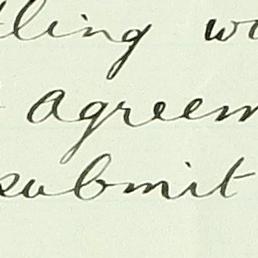 tling w
agreem
submit